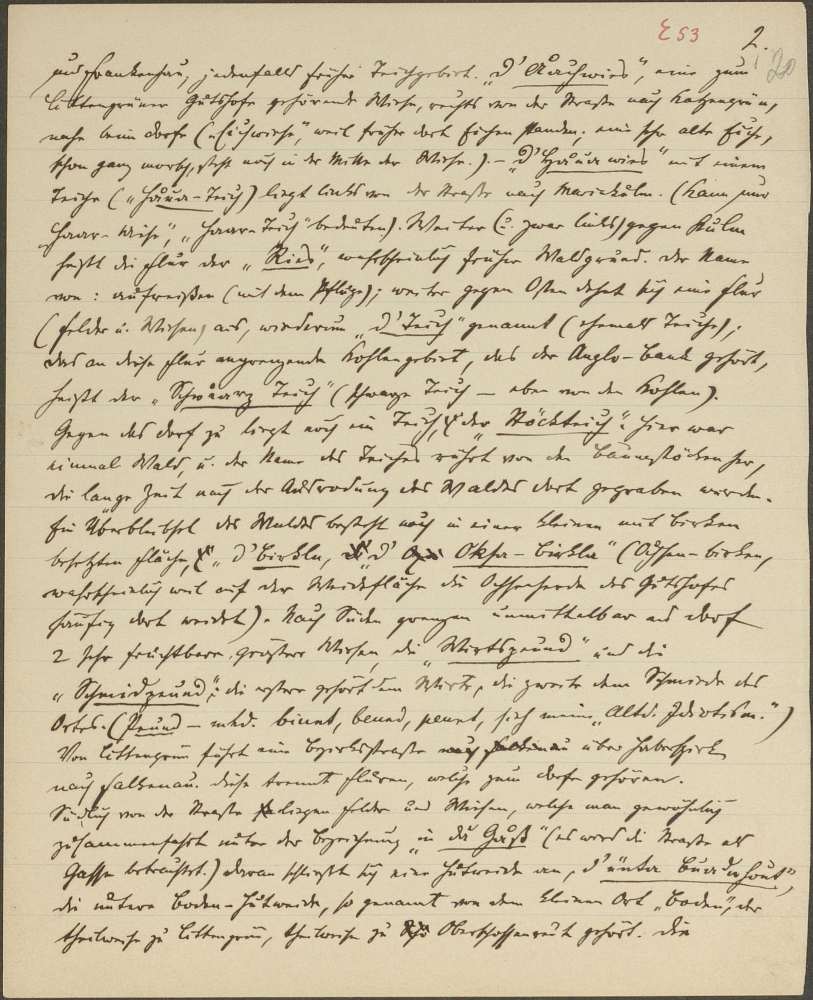 E 53 2.
20
und Frankenhau, jedenfalls früher Teichgebiet. „D' Åichwies", eine zum
Littengrüner Gutshofe gehörende Wiese, rechts von der Straße nach Katzengrün,
nahe beim Dorfe („Eichwiese", weil früher dort Eichen standen; eine sehr alte Eiche,
schon ganz morsch, steht noch in der Mitte der Wiese.). – „D' Håua wies" mit einem
Teiche („Håua-Teich") liegt links von der Straße nach Mariakulm. (Kann nur
Haar-Wiese", „Haar-Teich" bedeuten). Weiter (u. zwar links) gegen Kulm
heißt die Flur der „Ries", wahrscheinlich früher Waldgrund. Der Name
von: aufreißen (mit dem Pfluge); weiter gegen Osten dehnt sich eine Flur
(Felder u. Wiesen) aus, wiederum „d' Teich" genannt (ehemals Teiche);
das an diese Flur angrenzende Kohlengebiet, das der Anglo-Bank gehört,
heißt der „Schwarz Teich" (schwarze Teich – eben von den Kohlen).
Gegen das Dorf zu liegt noch ein Teich, „der Stöckteich". Hier war
einmal Wald, u. der Name des Teiches rührt von den Baumstöcken her,
die lange Zeit nach der Ausrodung des Waldes dort gegraben wurden.
Ein Überbleibsel des Waldes besteht noch in einer kleinen mit Birken
besetzten Fläche, „d' Birkln, d' Oksn-Birkla" (Ochsen-birken,
wahrscheinlich weil auf der Weidefläche die Ochsenherde des Gutshofes
häufig dort weidet). Nach Süden grenzen unmittelbar ans Dorf
2 sehr fruchtbare, größere Wiesen, die „Wirtspeund" und die
„Schmidpeund"; die erstere gehört dem Wirte, die zweite dem Schmiede des
Ortes. (Peund – mhd. biunt, beund, peunt, sieh meine „Altd. Idiotism.")
Von Littengrün führt eine Bezirksstraße über Haberspirk
nach Falkenau. Diese trennt Fluren, welche zum Dorfe gehören.
Südlich von der Straße liegen Felder und Wiesen, welche man gewöhnlich
zusammenfaßt unter der Bezeichnung „in da Gaß" (es wird die Straße als
Gasse betrachtet.) Daran schließt sich eine Hutweide an, d' ünta Buadnhout",
die untere Boden-Hutweide, so genannt von dem kleinen Ort „Boden", der
theilweise zu Littengrün, theilweise zu Oberschossenreut gehört. Die